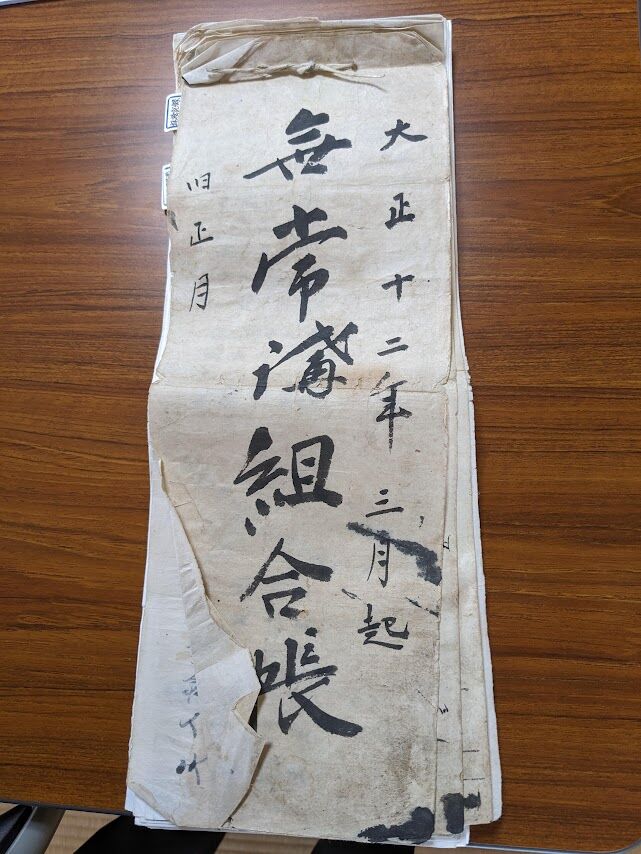 大正十二年三月起
無常講組合帳
旧正月